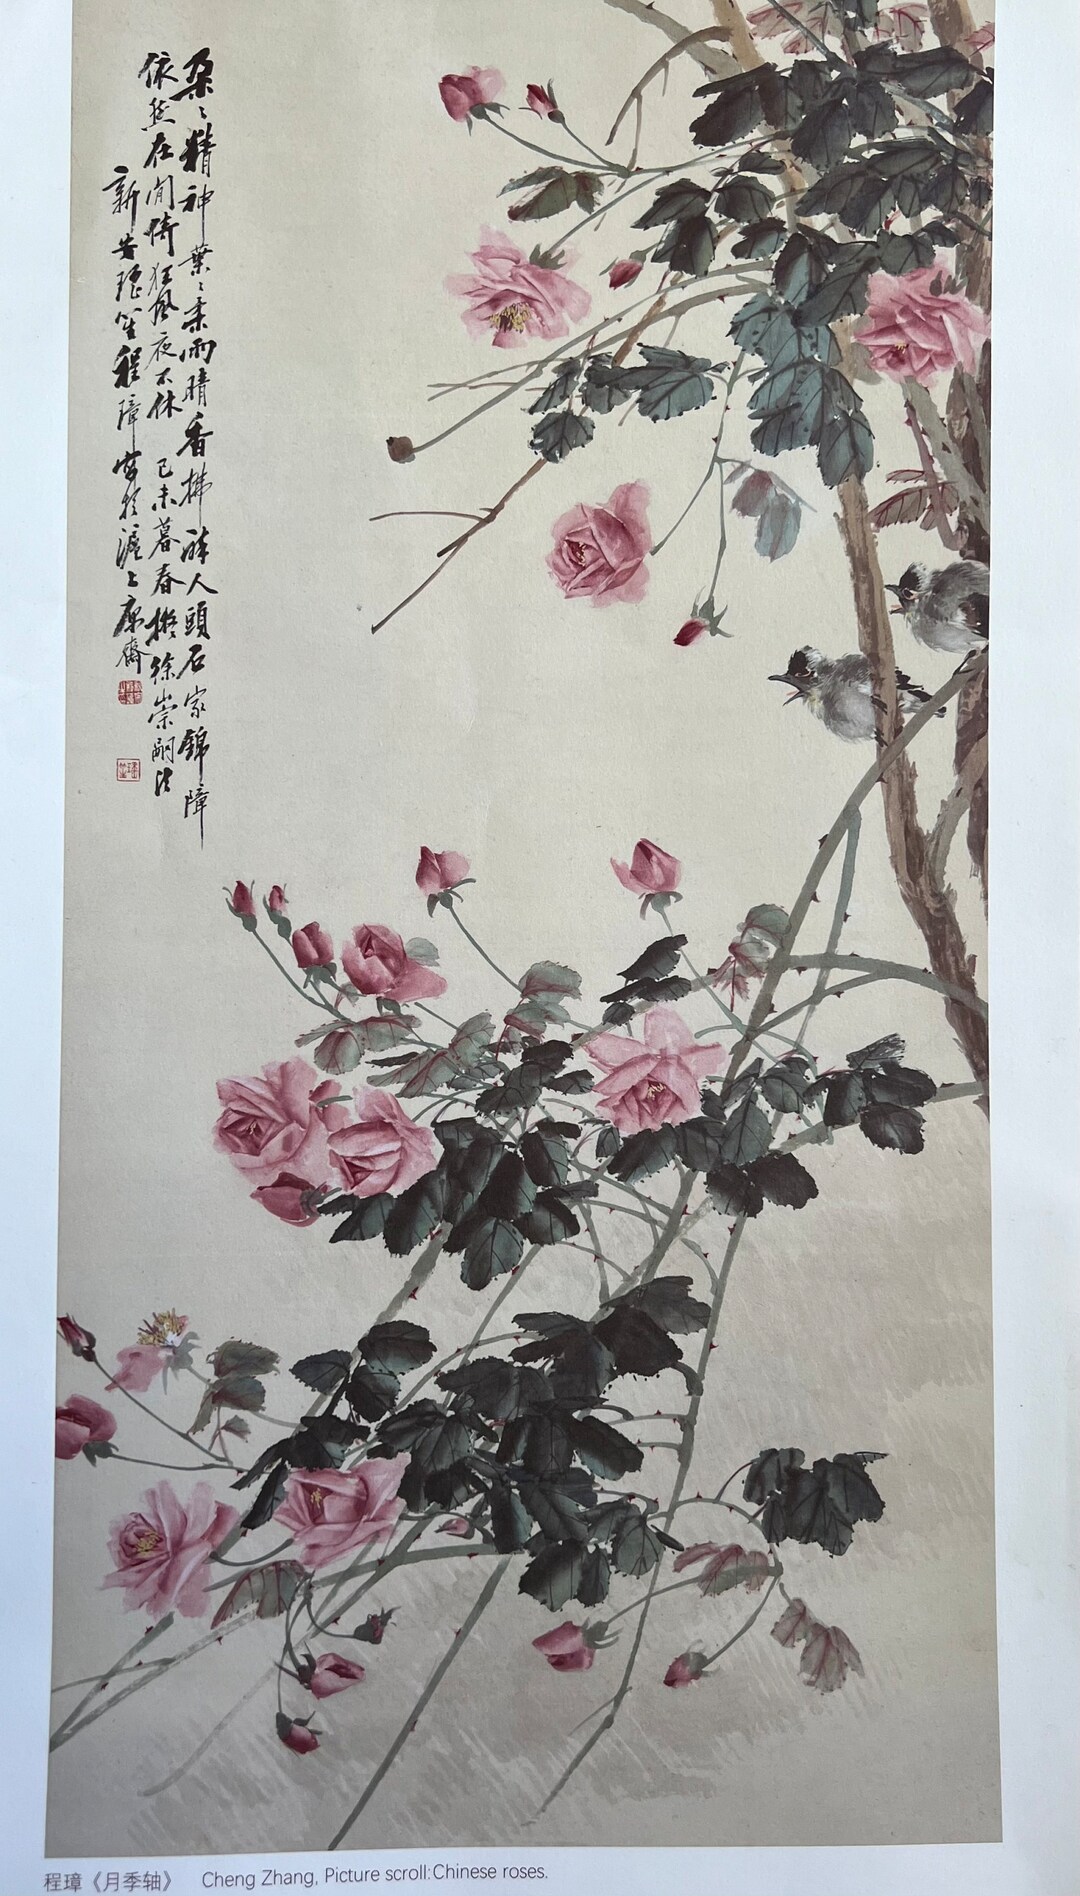 朵〻精神葉〻柔雨晴香拂醉人頭石家錦障
依然在閒倚狂風夜不休 己未暮春擬徐崇嗣法
新安瑤笙程璋寫於滬上廎齋
程璋《月季轴》 Cheng Zhang, Picture scroll: Chinese roses.